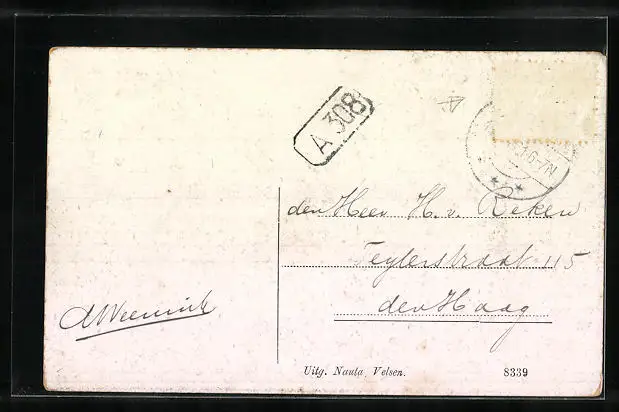 A 308
6-7N
den Heer H. v. Reken
Teylerstraat 115
den Haag
Uitg. Nauta, Velsen.
8339